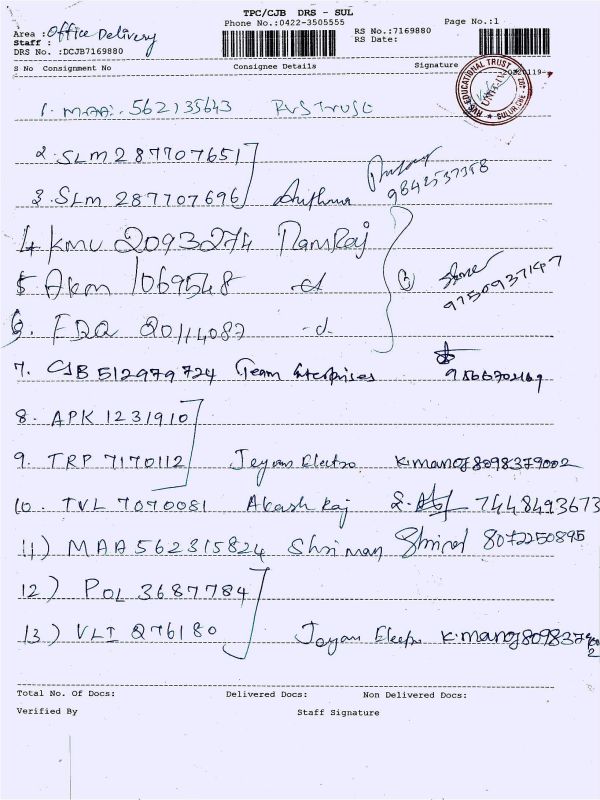 TPC/CJB DRS - SUL
Phone No.:0422-3505555
Page No.:1
Area : Office Delivery
RS No.:7169880
Staff :
RS Date:
DRS No. :DCJB7169880
S No Consignment No Consignee Details Signature
RVS EDUCATIONAL TRUST
1. MAA. 562135643 RVS TRUST
2. SLM 287707651
3. SLM 287707696 9842537358
4. KMU 2093274 RamRaj
5 AKM 1069548 -d
3
9750937147
6. FDA 20114087 -d.
7. CJB 512979724 Team Enterprises
8. APK 1231910
9. TRP 7170112 Jeyam Electro K.manoj 8098379002
10. TVL 7070081 Akash Raj 7448493673
11) MAA 562315824 Shriman 8072250895
12) POL 3687784
13) VLI 276180 Jeyam Electro K.manoj 8098379002
Total No. Of Docs: Delivered Docs: Non Delivered Docs:
Verified By Staff Signature